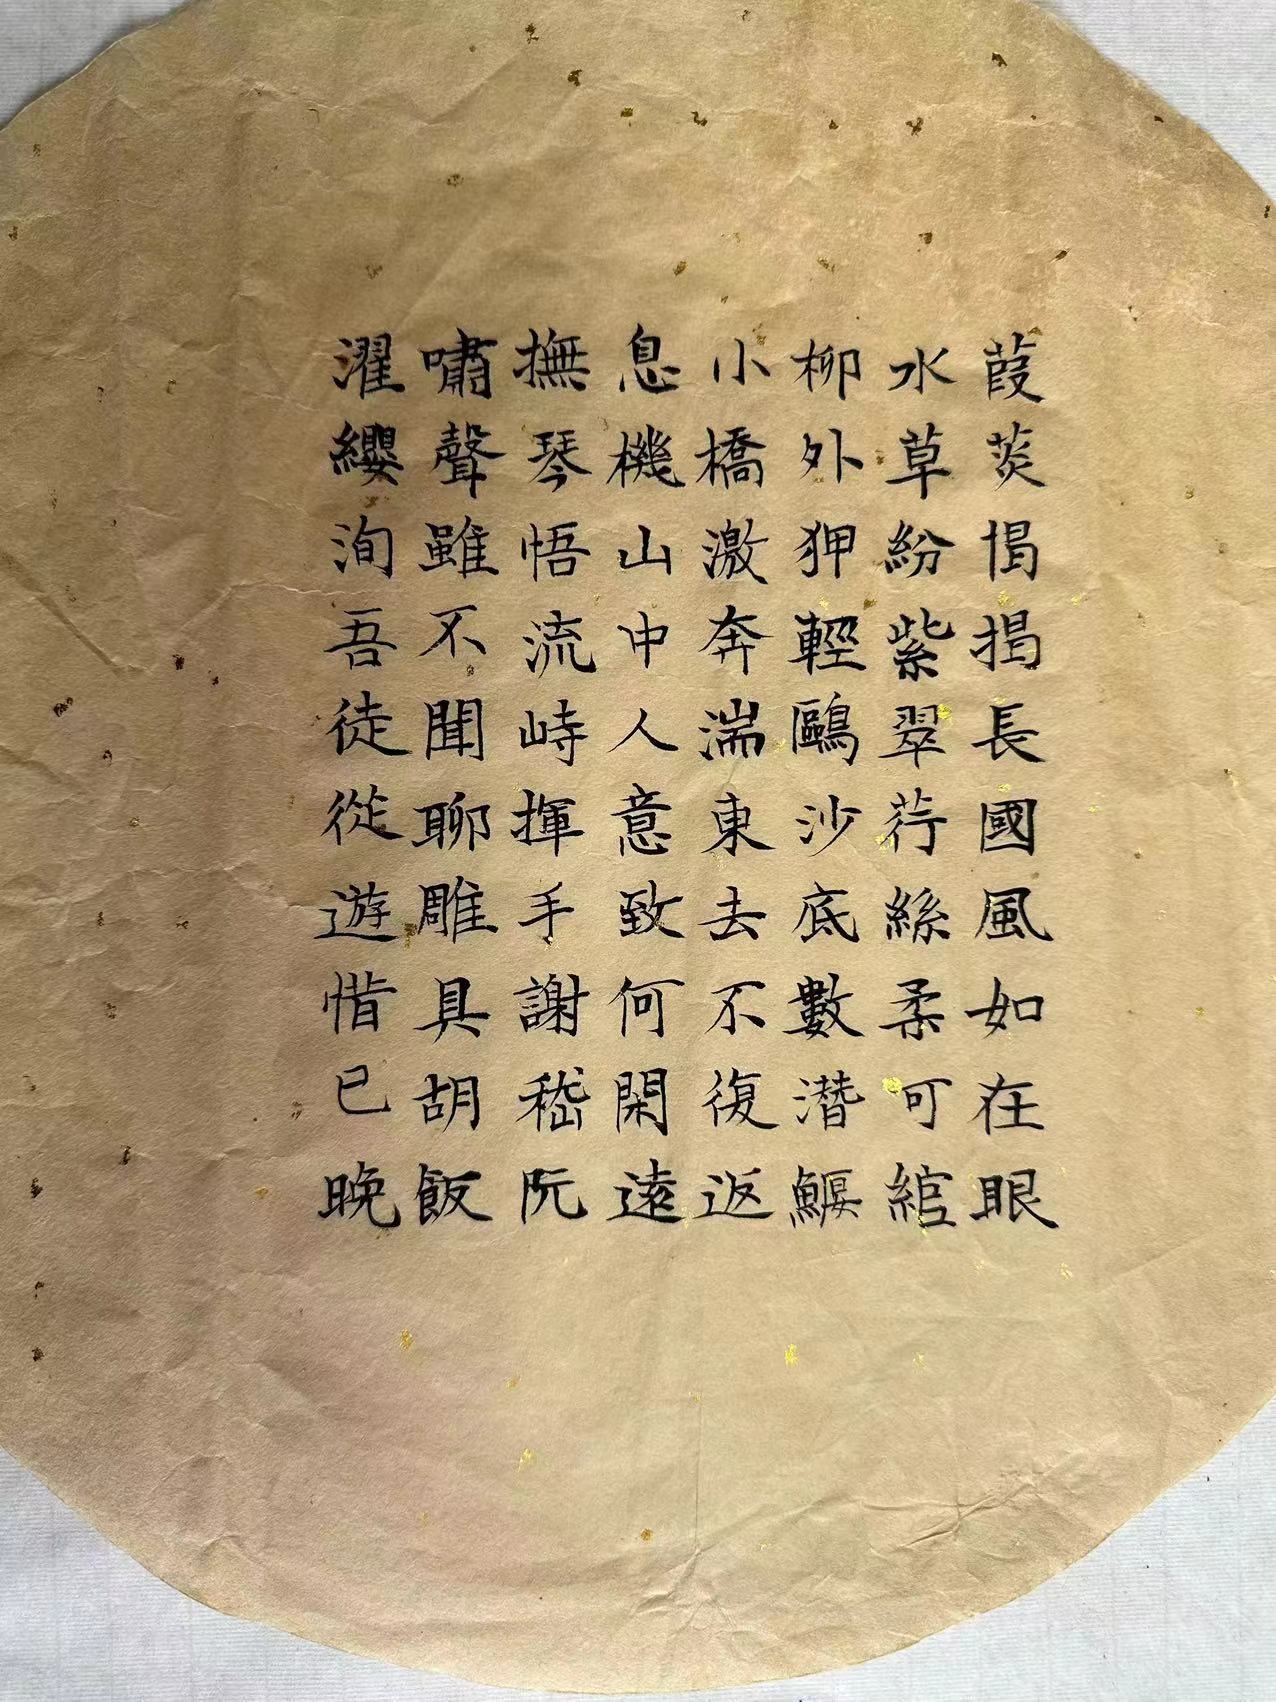 葭菼揭揭長國風如在眼
水草紛紫翠荇絲柔可綰
柳外狎輕鷗沙底數潛鰋
小橋激奔湍東去不復返
息機山中人意致何閑遠
撫琴悟流峙揮手謝嵇阮
嘯聲雖不聞聊雕具胡飯
濯纓洵吾徒從遊惜已晚